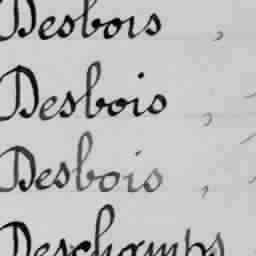 Desbois ,
Desbois ,
Desbois ,
Deschamps